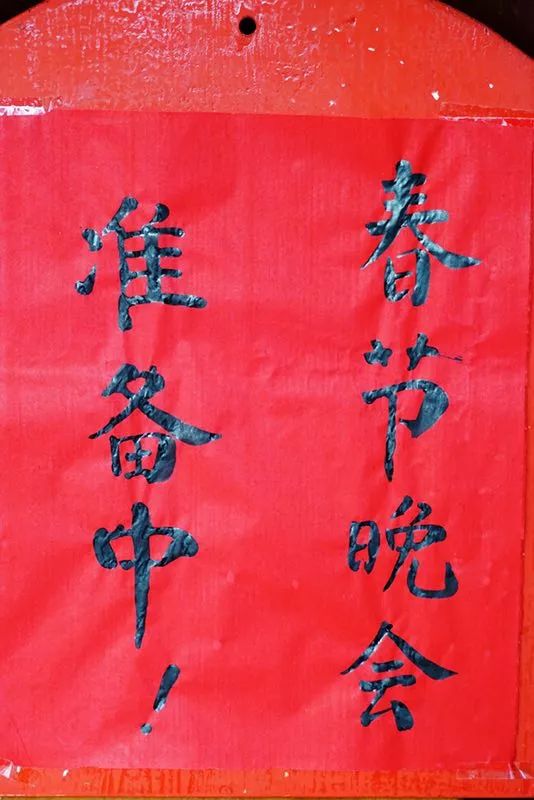 春节晚会
准备中！